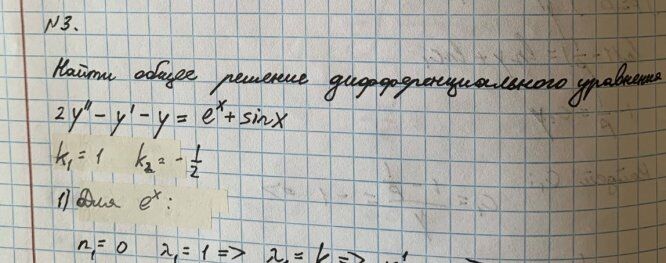 N3.
Найти общее решение дифференциального уравнения
2y'' - y' - y = e^x + sinx
k₁ = 1 k₂ = - 1/2
1) Для e^x:
n₁ = 0 λ₁ = 1 => λ₁ = k =>